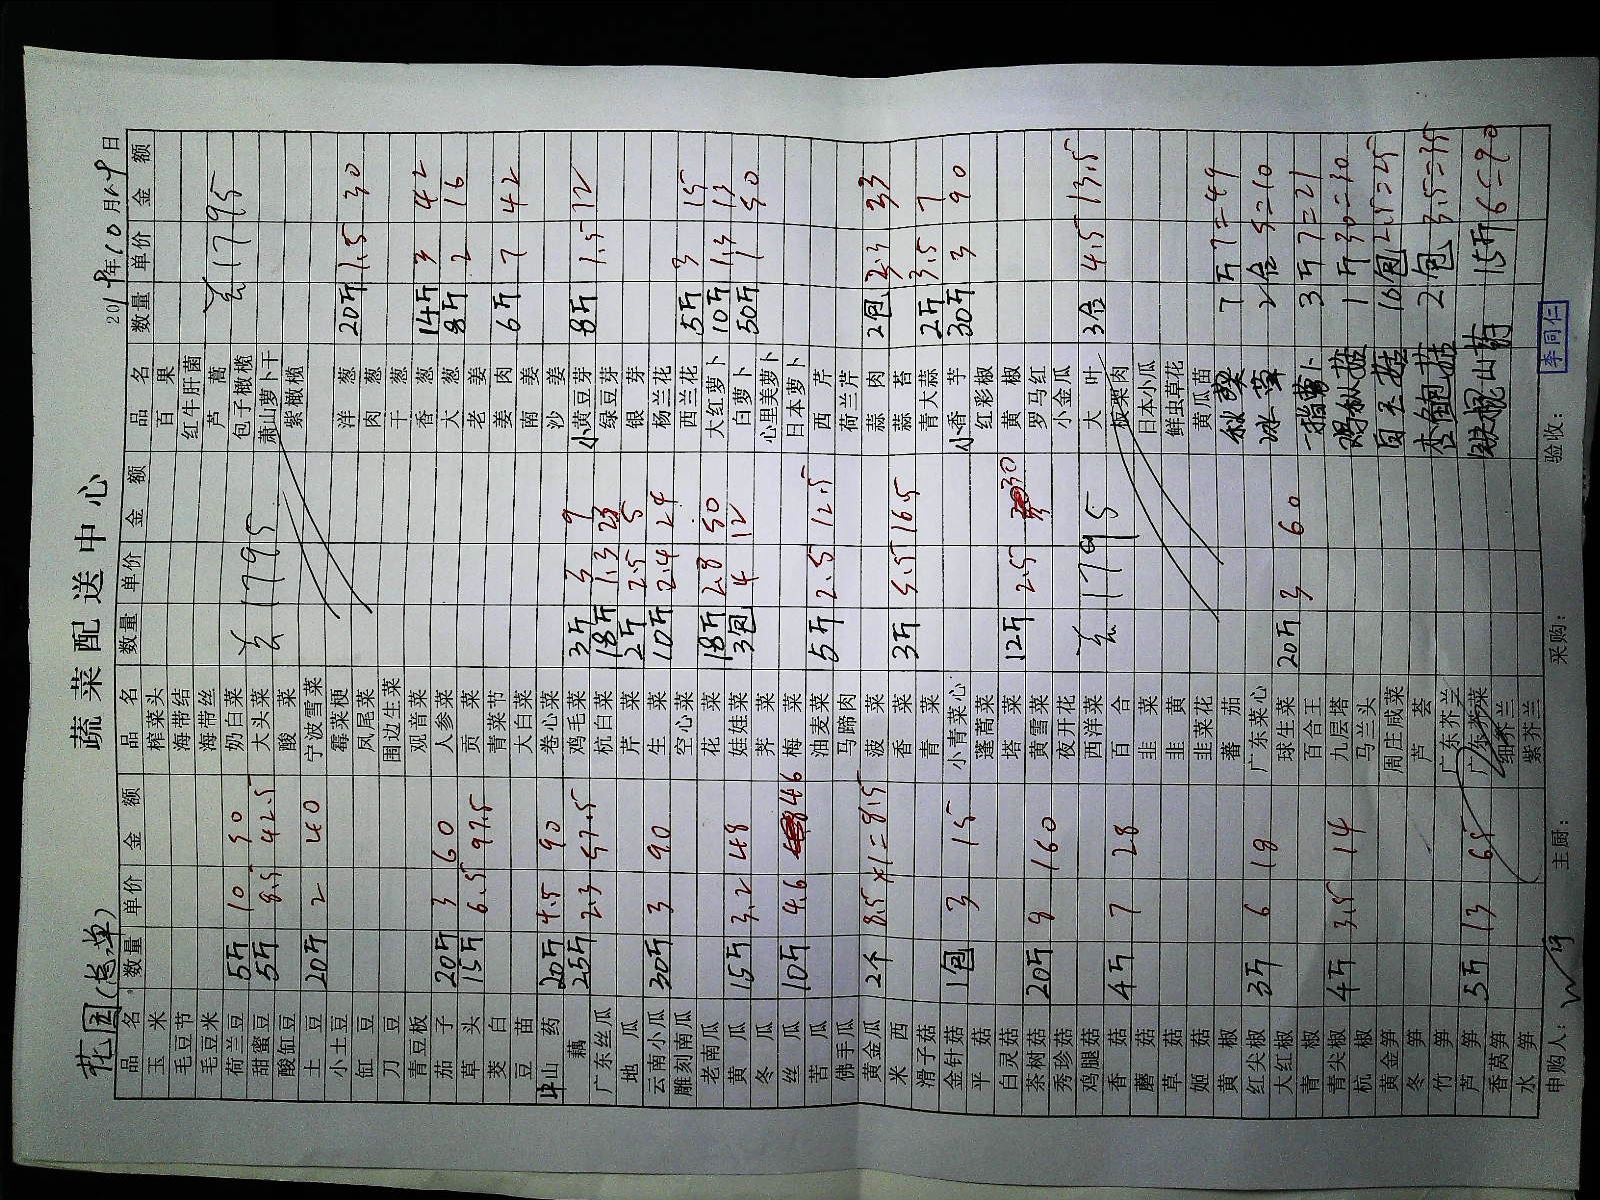 蔬菜配送中心
花园(总单) 2019年10月29日
品名 数量 单价 金额 品名 数量 单价 金额 品名 数量 单价 金额
玉米 榨菜头 百果
毛豆节 海带结 红牛肝菌
毛豆米 海带丝 芦蒿 去1795
荷兰豆 5斤 10 50 奶白菜 包子橄榄
甜蜜豆 5斤 8.5 42.5 大头菜 去1795 萧山萝卜干
酸缸豆 酸菜 紫橄榄
土豆 20斤 2 40 宁波雪菜
小土豆 霉菜梗 洋葱 20斤 1.5 30
缸豆 凤尾菜 肉葱
刀豆 围边生菜 干葱
青豆板 观音菜 香葱 14斤 3 42
茄子 20斤 3 60 人参菜 大葱 8斤 2 16
草头 15斤 6.5 97.5 贡菜 老姜
茭白 青菜节 姜肉 6斤 7 42
豆苗 大白菜 南姜
山药 20斤 4.5 90 卷心菜 沙姜
藕 25斤 2.3 57.5 鸡毛菜 3斤 3 9 小黄豆芽 8斤 1.5 12
广东丝瓜 杭白菜 18斤 1.3 23 绿豆芽
地瓜 芹菜 2斤 2.5 5 银芽
云南小瓜 30斤 3 90 生菜 10斤 2.4 24 杨兰花
雕刻南瓜 空心菜 西兰花 5斤 3 15
老南瓜 花菜 18斤 2.8 50 大红萝卜 10斤 1.3 13
黄瓜 15斤 3.2 48 娃娃菜 3包 4 12 白萝卜 50斤 1 50
冬瓜 荠菜 心里美萝卜
丝瓜 10斤 4.6 46 梅菜 日本萝卜
苦瓜 油麦菜 5斤 2.5 12.5 西芹
佛手瓜 马蹄肉 荷兰芹
黄金瓜 2个 8.5×1=8.5 菠菜 蒜肉 2包 33
米西 香菜 3斤 5.5 16.5 蒜苔
滑子菇 青菜 青大蒜 2斤 3.5 7
金针菇 1包 3 15 小青菜心 小香芋 30斤 3 90
平菇 蓬蒿菜 红彩椒
白灵菇 塔菜 12斤 2.5 30 黄椒
茶树菇 20斤 8 160 黄雪菜 罗马红
秀珍菇 夜开花 小金瓜
鸡腿菇 西洋菜 去1795 大叶 3合 4.5 13.5
香菇 4斤 7 28 百合 板栗肉
蘑菇 韭菜 日本小瓜
草菇 韭黄 鲜虫草花
姬菇 韭菜花 黄瓜苗
黄椒 蕃茄 秋葵 7斤 7=49
红尖椒 3斤 6 18 广东菜心 冰草 2合 5=10
大红椒 球生菜 20斤 3 60
青椒 百合王 一指萝卜 3斤 7=21
青尖椒 4斤 3.5 14 九层塔 1斤 30=30
杭椒 马兰头 白玉菇 10包 2.5=25
黄金笋 周庄咸菜
冬笋 芦荟 杏鲍菇 2包 3.5=35
竹笋 广东芥兰
芦笋 5斤 13 65 广东芥菜 铁棍山药 15斤 6=90
香莴笋 细芥兰
水笋 紫芥兰
申购人: 主厨: 采购: 验收: 李同仁